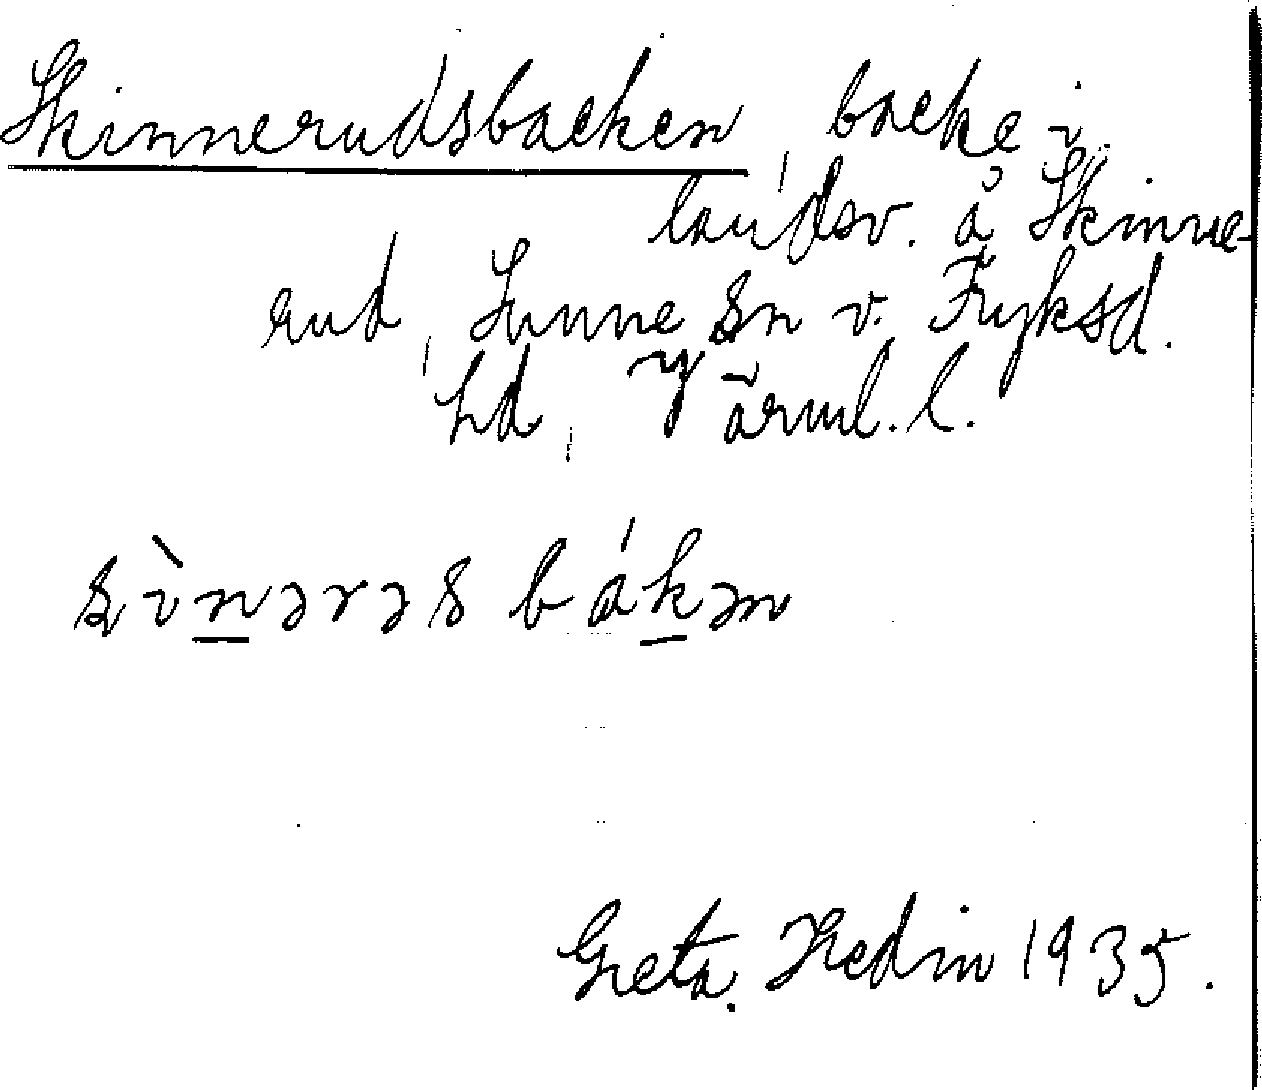 Skinnerudsbacken, backe i
landsv. å Skinne-
rud, Sunne Sn v. Fryksd.
hd, Värml. l.
ʂìn̲ərəs bák̲ən
Greta Hedin 1935.